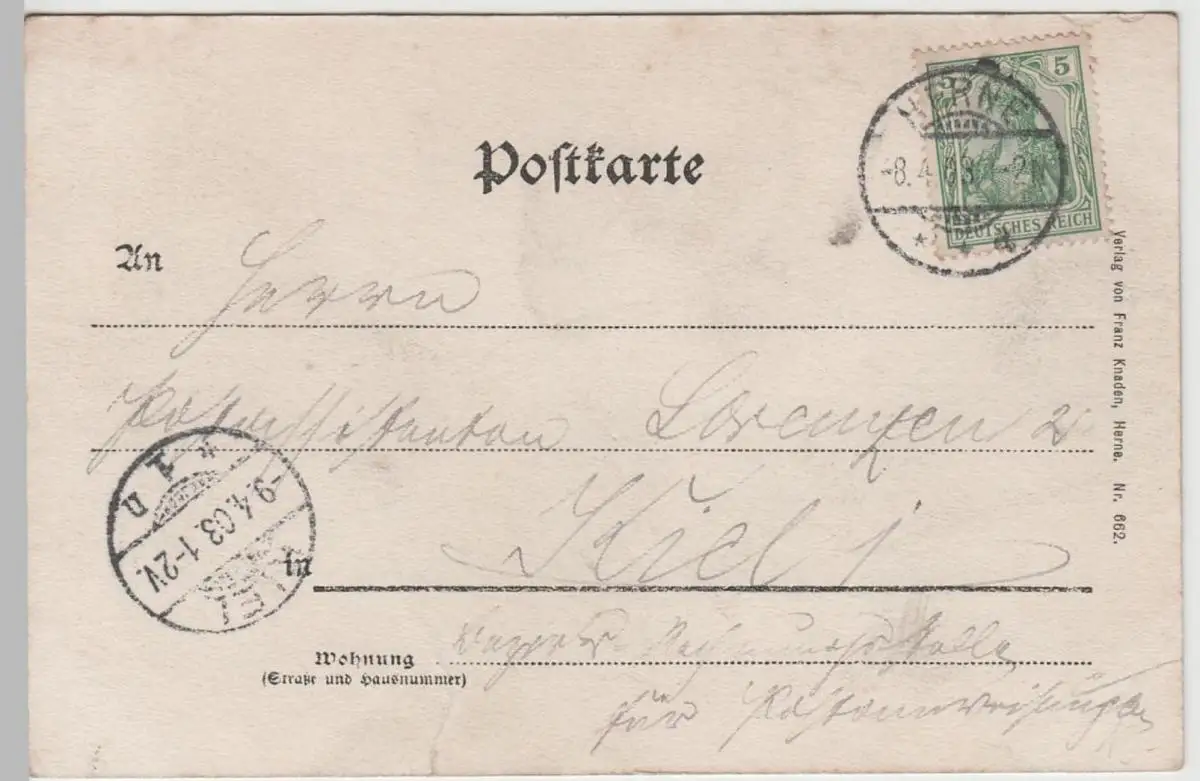 Postkarte
5 5
HERNE
-8.4.03.
DEUTSCHES REICH
An Herrn
Postassistenten Lorenzen 2
in Kiel
KIEL
-9.4.03. 1-2V.
* 1 u
Wohnung
(Straße und Hausnummer)
Rechnungsstelle
für Postanweisungen
Verlag von Franz Knaden, Herne. Nr. 662.